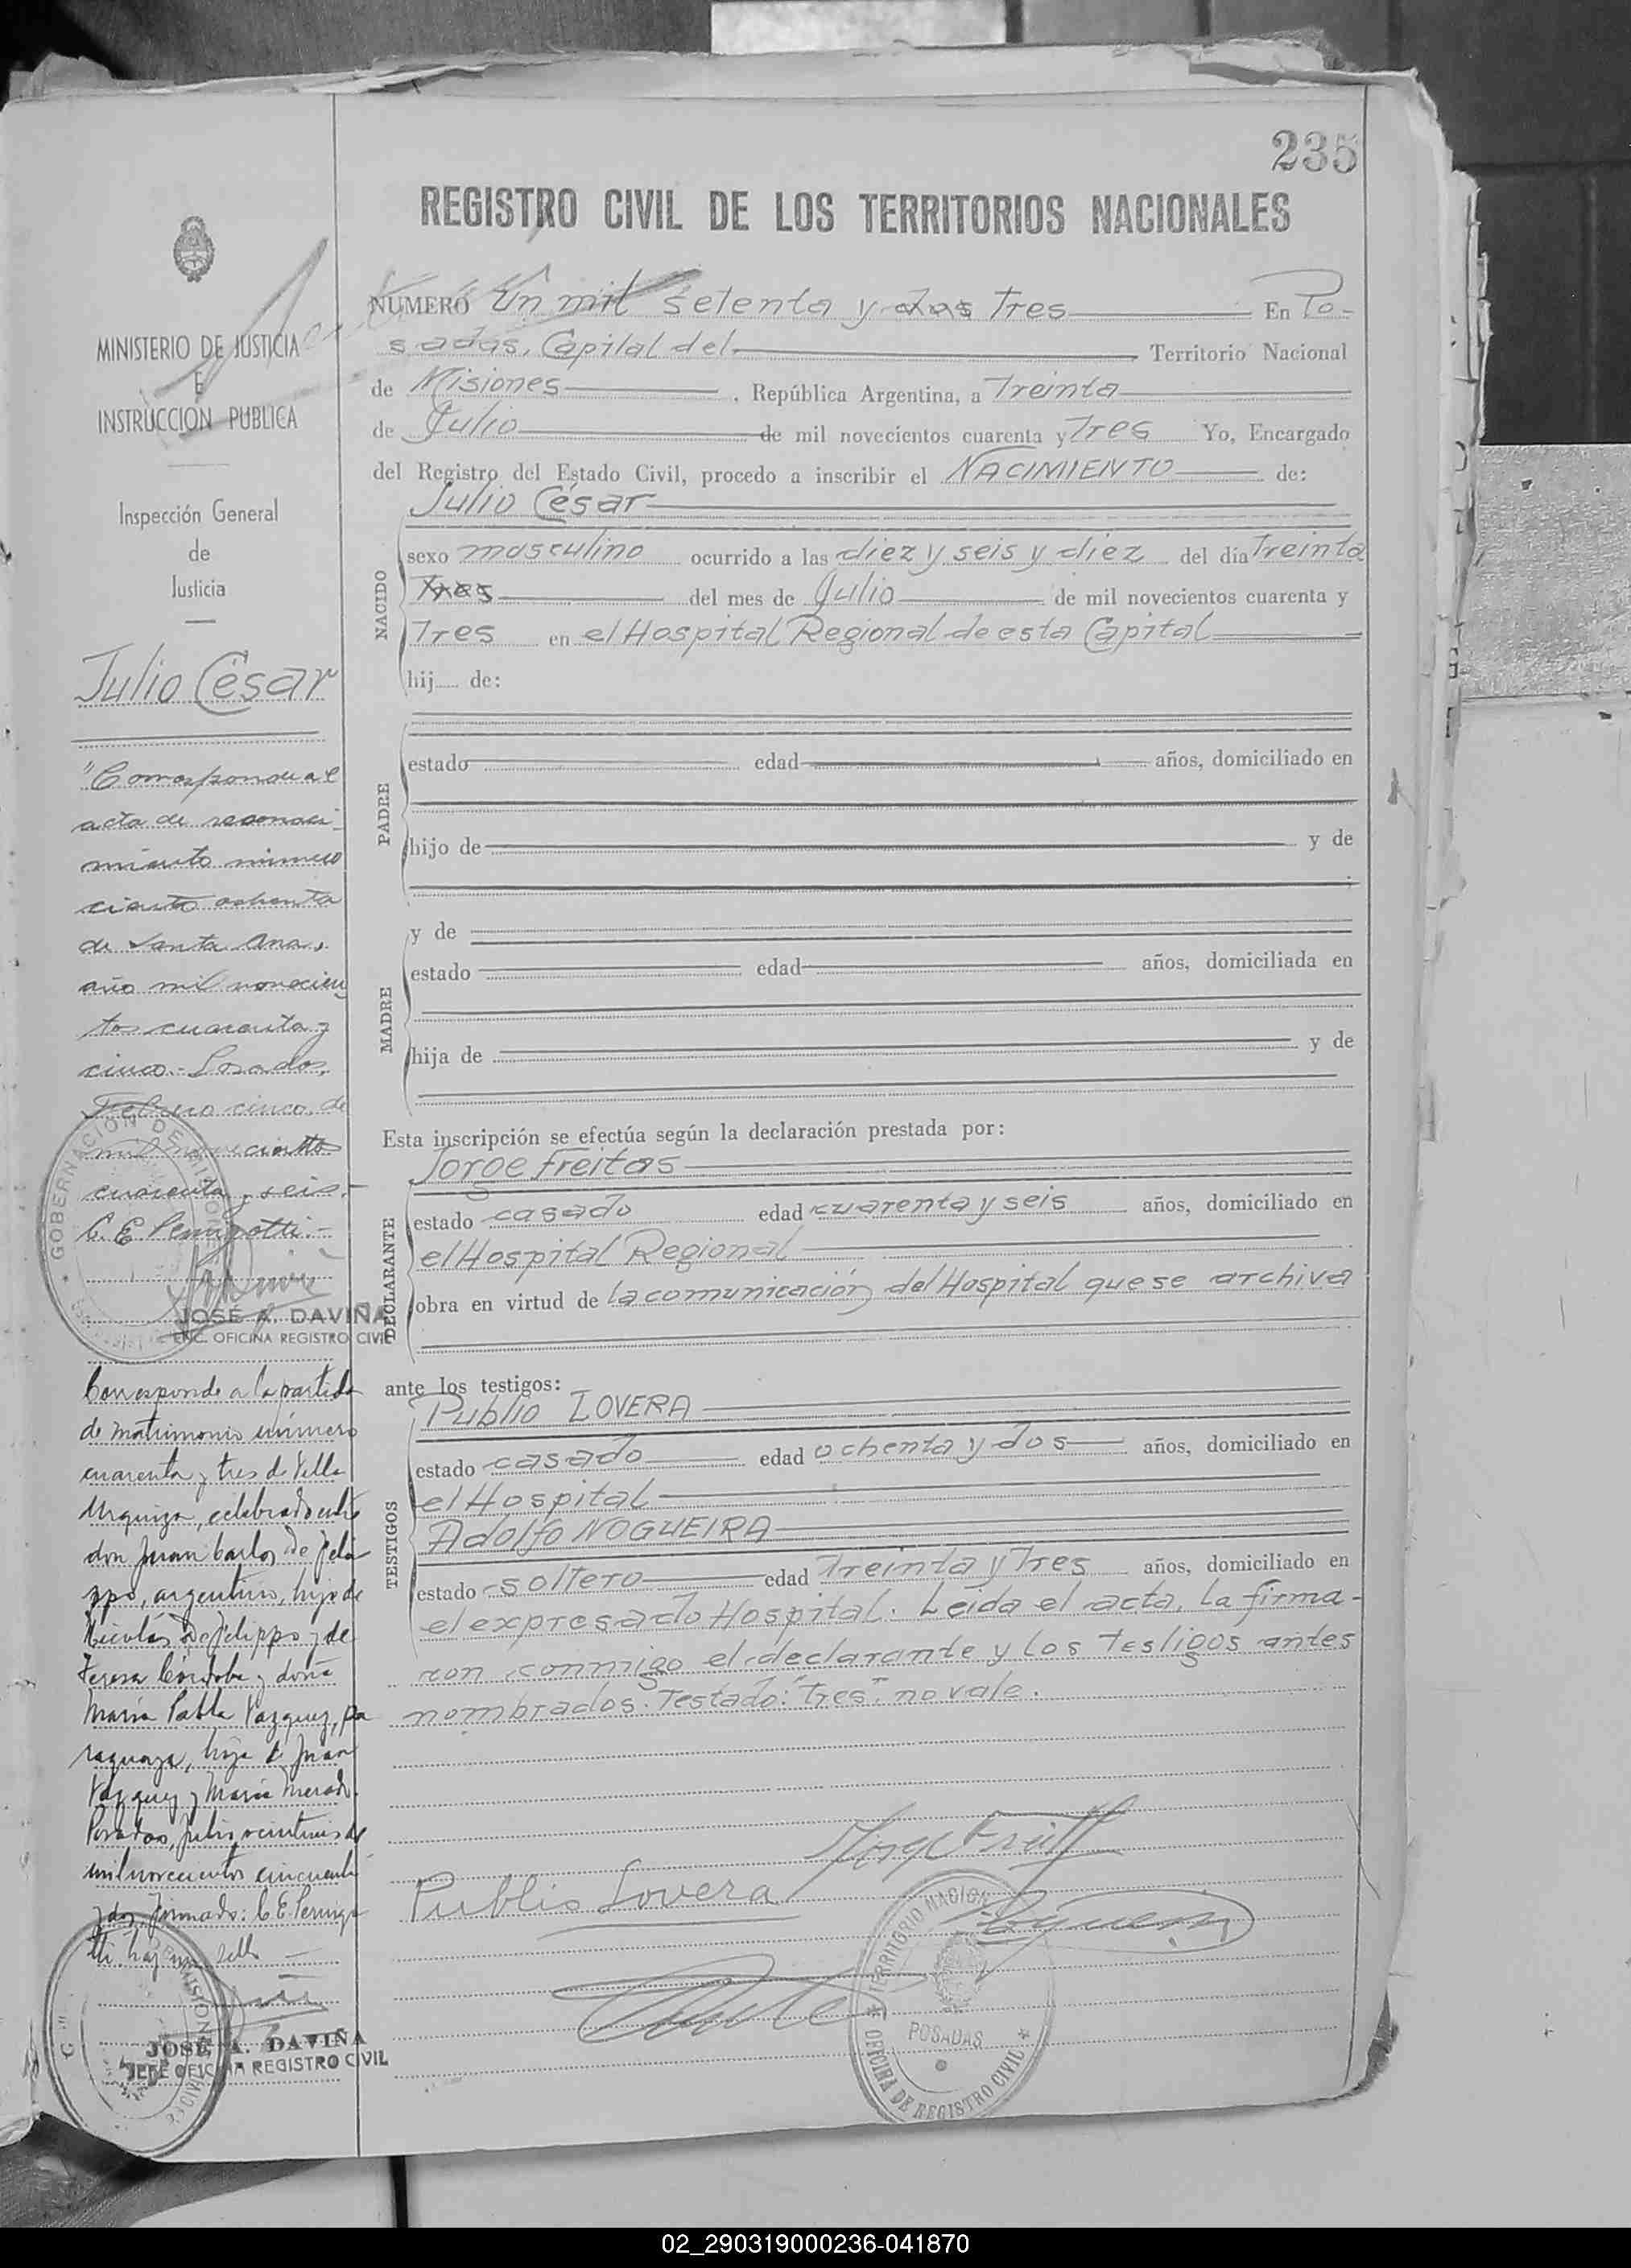 235
REGISTRO CIVIL DE LOS TERRITORIOS NACIONALES
NUMERO Un mil setenta y dos Tres En Po-
sadas, Capital del Territorio Nacional
de Misiones, República Argentina, a Treinta
de Julio de mil novecientos cuarenta y Tres Yo, Encargado
del Registro del Estado Civil, procedo a inscribir el NACIMIENTO de:
NACIDO
Julio César
sexo masculino ocurrido a las diez y seis y diez del día Treinta
Tres del mes de Julio de mil novecientos cuarenta y
Tres en el Hospital Regional de esta Capital
hij de:
PADRE
estado edad años, domiciliado en
hijo de y de
MADRE
y de
estado edad años, domiciliada en
hija de y de
Esta inscripción se efectúa según la declaración prestada por:
DECLARANTE
Jorge Freitas
estado casado edad cuarenta y seis años, domiciliado en
el Hospital Regional
obra en virtud de la comunicación del Hospital que se archiva
ante los testigos:
TESTIGOS
Publio LOVERA
estado casado edad ochenta y dos años, domiciliado en
el Hospital
Adolfo NOGUEIRA
estado soltero edad Treinta y Tres años, domiciliado en
el expresado Hospital. Leída el acta, la firma-
ron conmigo el declarante y los testigos antes
nombrados. Testado: "Tres" no vale.
Publio Lovera
TERRITORIO NACION
POSADAS
OFICINA DE REGISTRO CIVIL
MINISTERIO DE JUSTICIA
E
INSTRUCCION PUBLICA
Inspección General
de
Justicia
Julio César
"Corresponde al
acta de reconoci-
miento número
ciento ochenta
de Santa Ana,
año mil novecien
tos cuarenta y
cinco.- Posadas,
Febrero cinco de
mil novecientos
cuarenta y seis.
C. E. Perigotti.-
GOBERNACION DE MISIONES
JOSÉ A. DAVIÑA
ENC. OFICINA REGISTRO CIVIL
Corresponde a la partida
de matrimonio número
cuarenta y tres de Villa
Urquiza, celebrado entre
don Juan Carlos De Feli
ppo, argentino, hijo de
Nicolás De Felippo y de
Teresa Córdoba y doña
María Pabla Vazquez, pa
raguaya, hija de Juan
Vazquez y María
Posadas, Julio de
mil novecientos cincuenta
y dos. Firmado: C. E. Perigo
tti. hay un sello
JOSÉ A. DAVIÑA
JEFE OFICINA REGISTRO CIVIL
02_290319000236-041870